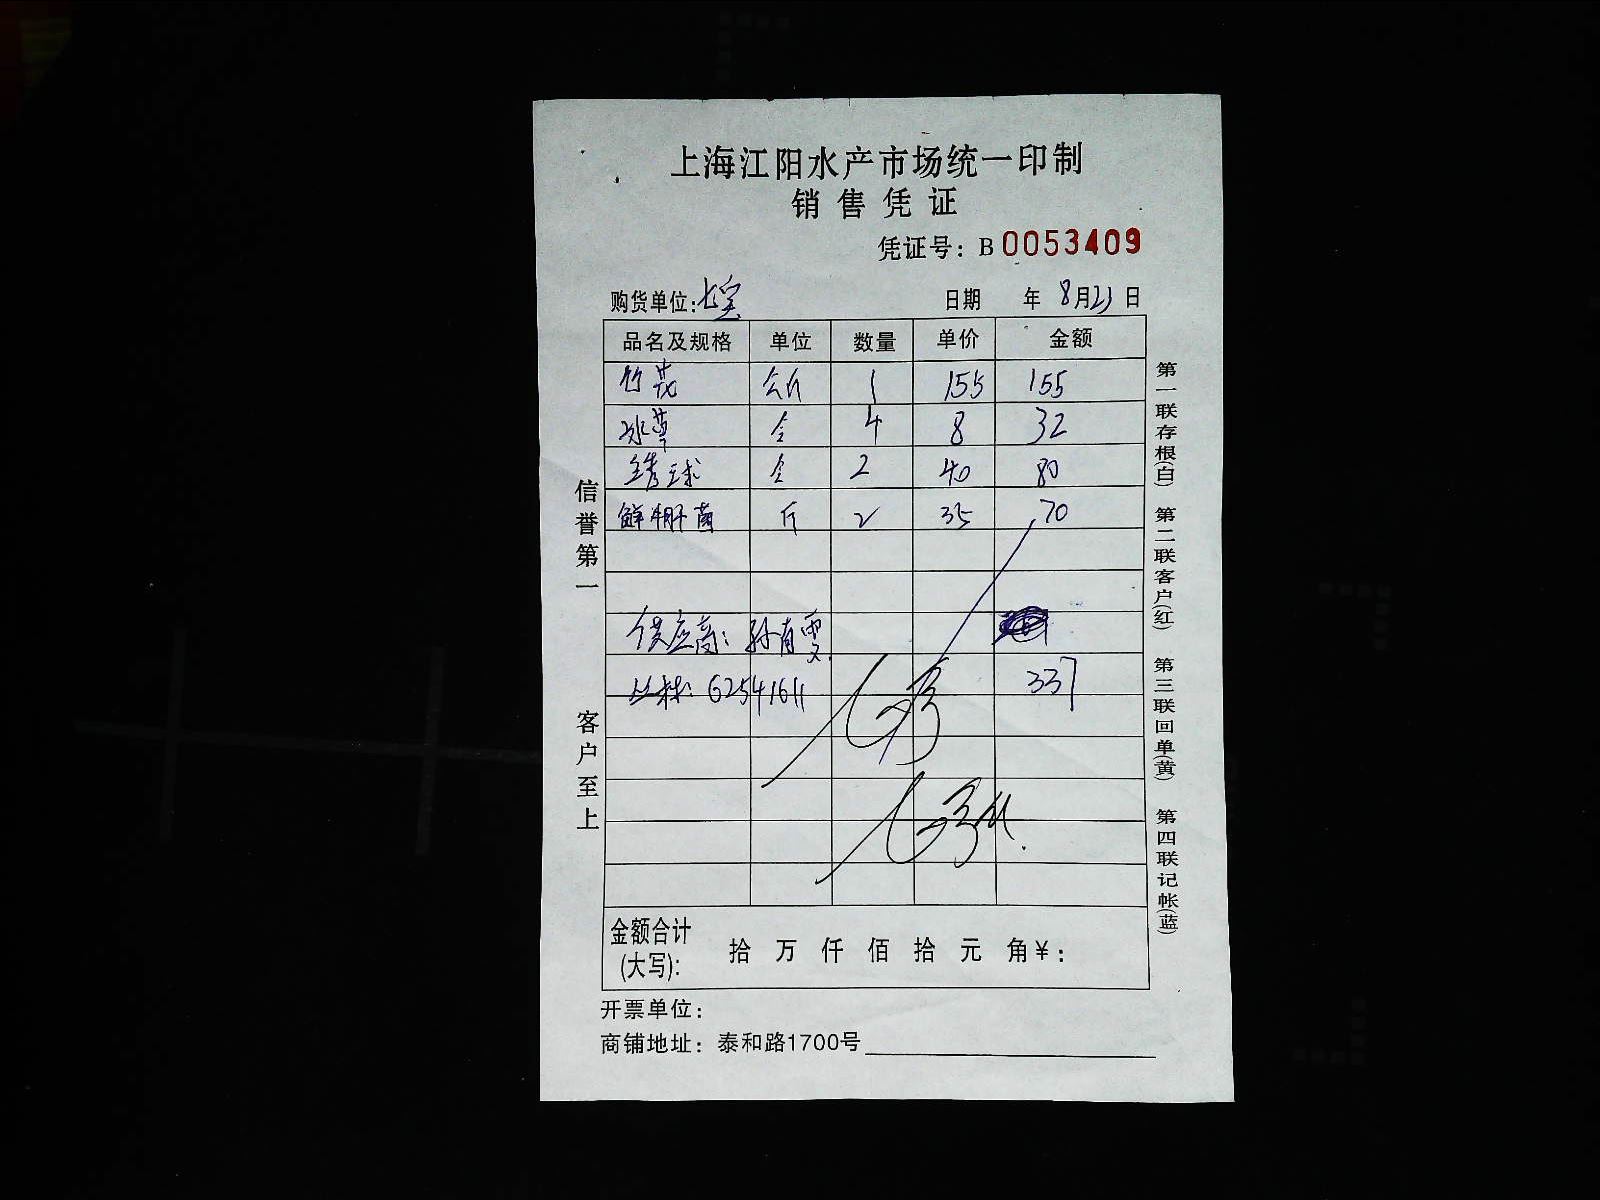 上海江阳水产市场统一印制
销售凭证
凭证号：B0053409
购货单位：七宝 日期 年 8月23日
品名及规格 单位 数量 单价 金额
竹花 公斤 1 155 155
冰草 4 8 32
绣球 2 40 80
鲜牛肝菌 斤 2 35 70
供应商：孙有雯
丛林：62541611 337
金额合计(大写)： 拾 万 仟 佰 拾 元 角 ¥：
开票单位：
商铺地址：泰和路1700号
信誉第一 客户至上
第一联存根(白) 第二联客户(红) 第三联回单(黄) 第四联记帐(蓝)